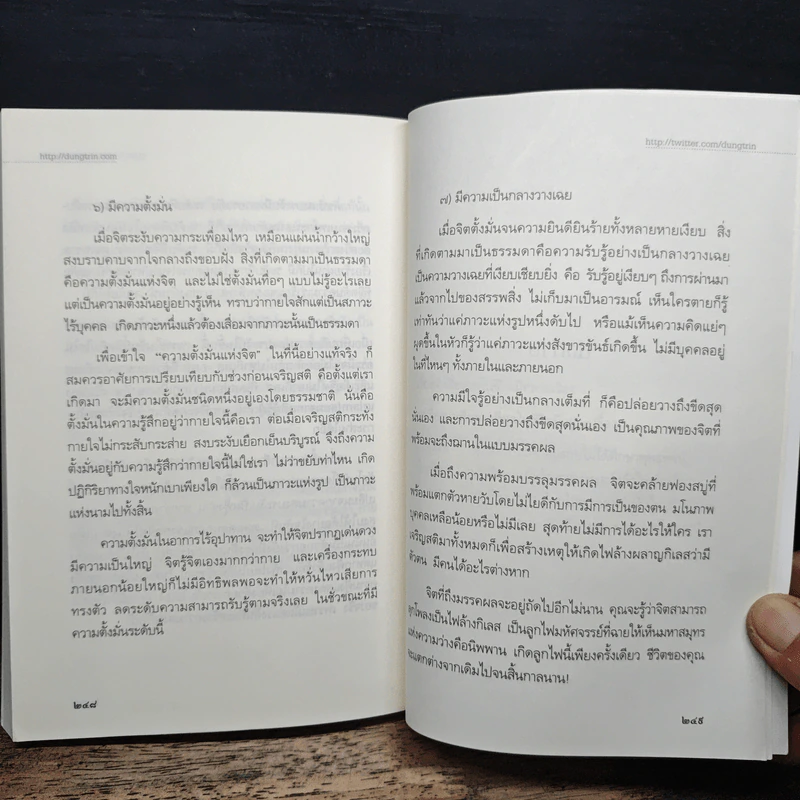 http://dungtrin.com
๖) มีความตั้งมั่น
เมื่อจิตระงับความกระเพื่อมไหว เหมือนแผ่นน้ำกว้างใหญ่
สงบราบคาบจากใจกลางถึงขอบฝั่ง สิ่งที่เกิดตามมาเป็นธรรมดา
คือความตั้งมั่นแห่งจิต และไม่ใช่ตั้งมั่นทื่อๆ แบบไม่รู้อะไรเลย
แต่เป็นความตั้งมั่นอยู่อย่างรู้เห็น ทราบว่ากายใจสักแต่เป็นสภาวะ
ไร้บุคคล เกิดภาวะหนึ่งแล้วต้องเสื่อมจากภาวะนั้นเป็นธรรมดา
เพื่อเข้าใจ “ความตั้งมั่นแห่งจิต” ในที่นี้อย่างแท้จริง ก็
สมควรอาศัยการเปรียบเทียบกับช่วงก่อนเจริญสติ คือตั้งแต่เรา
เกิดมา จะมีความตั้งมั่นชนิดหนึ่งอยู่เองโดยธรรมชาติ นั่นคือ
ตั้งมั่นในความรู้สึกอยู่ว่ากายใจนี้คือเรา ต่อเมื่อเจริญสติกระทั่ง
กายใจไม่กระสับกระส่าย สงบระงับเยือกเย็นบริบูรณ์ จึงถึงความ
ตั้งมั่นอยู่กับความรู้สึกว่ากายใจนี้ไม่ใช่เรา ไม่ว่าขยับท่าไหน เกิด
ปฏิกิริยาทางใจหนักเบาเพียงใด ก็ล้วนเป็นภาวะแห่งรูป เป็นภาวะ
แห่งนามไปทั้งสิ้น
ความตั้งมั่นในอาการไร้อุปาทาน จะทำให้จิตปรากฏเด่นดวง
มีความเป็นใหญ่ จิตรู้จิตเองมากกว่ากาย และเครื่องกระทบ
ภายนอกน้อยใหญ่ก็ไม่มีอิทธิพลพอจะทำให้หวั่นไหวเสียการ
ทรงตัว ลดระดับความสามารถรับรู้ตามจริงเลย ในชั่วขณะที่มี
ความตั้งมั่นระดับนี้
๒๔๘
http://twitter.com/dungtrin
๗) มีความเป็นกลางวางเฉย
เมื่อจิตตั้งมั่นจนความยินดียินร้ายทั้งหลายหายเงียบ สิ่ง
ที่เกิดตามมาเป็นธรรมดาคือความรับรู้อย่างเป็นกลางวางเฉย
เป็นความวางเฉยที่เงียบเชียบยิ่ง คือ รับรู้อยู่เงียบๆ ถึงการผ่านมา
แล้วจากไปของสรรพสิ่ง ไม่เก็บมาเป็นอารมณ์ เห็นใครตายก็รู้
เท่าทันว่าแค่ภาวะแห่งรูปหนึ่งดับไป หรือแม้เห็นความคิดแย่ๆ
ผุดขึ้นในหัวก็รู้ว่าแค่ภาวะแห่งสังขารขันธ์เกิดขึ้น ไม่มีบุคคลอยู่
ในที่ไหนๆ ทั้งภายในและภายนอก
ความมีใจรู้อย่างเป็นกลางเต็มที่ ก็คือปล่อยวางถึงขีดสุด
นั่นเอง และการปล่อยวางถึงขีดสุดนั่นเอง เป็นคุณภาพของจิตที่
พร้อมจะถึงฌานในแบบมรรคผล
เมื่อถึงความพร้อมบรรลุมรรคผล จิตจะคล้ายฟองสบู่ที่
พร้อมแตกตัวหายวับโดยไม่ไยดีกับการมีการเป็นของตน มโนภาพ
บุคคลเหลือน้อยหรือไม่มีเลย สุดท้ายไม่มีการได้อะไรให้ใคร เรา
เจริญสติมาทั้งหมดก็เพื่อสร้างเหตุให้เกิดไฟล้างผลาญกิเลสว่ามี
ตัวตน มีคนได้อะไรต่างหาก
จิตที่ถึงมรรคผลจะอยู่ถัดไปอีกไม่นาน คุณจะรู้ว่าจิตสามารถ
ลุกโพลงเป็นไฟล้างกิเลส เป็นลูกไฟมหัศจรรย์ที่ฉายให้เห็นมหาสมุทร
แห่งความว่างคือนิพพาน เกิดลูกไฟนี้เพียงครั้งเดียว ชีวิตของคุณ
จะแตกต่างจากเดิมไปจนสิ้นกาลนาน!
๒๔๙